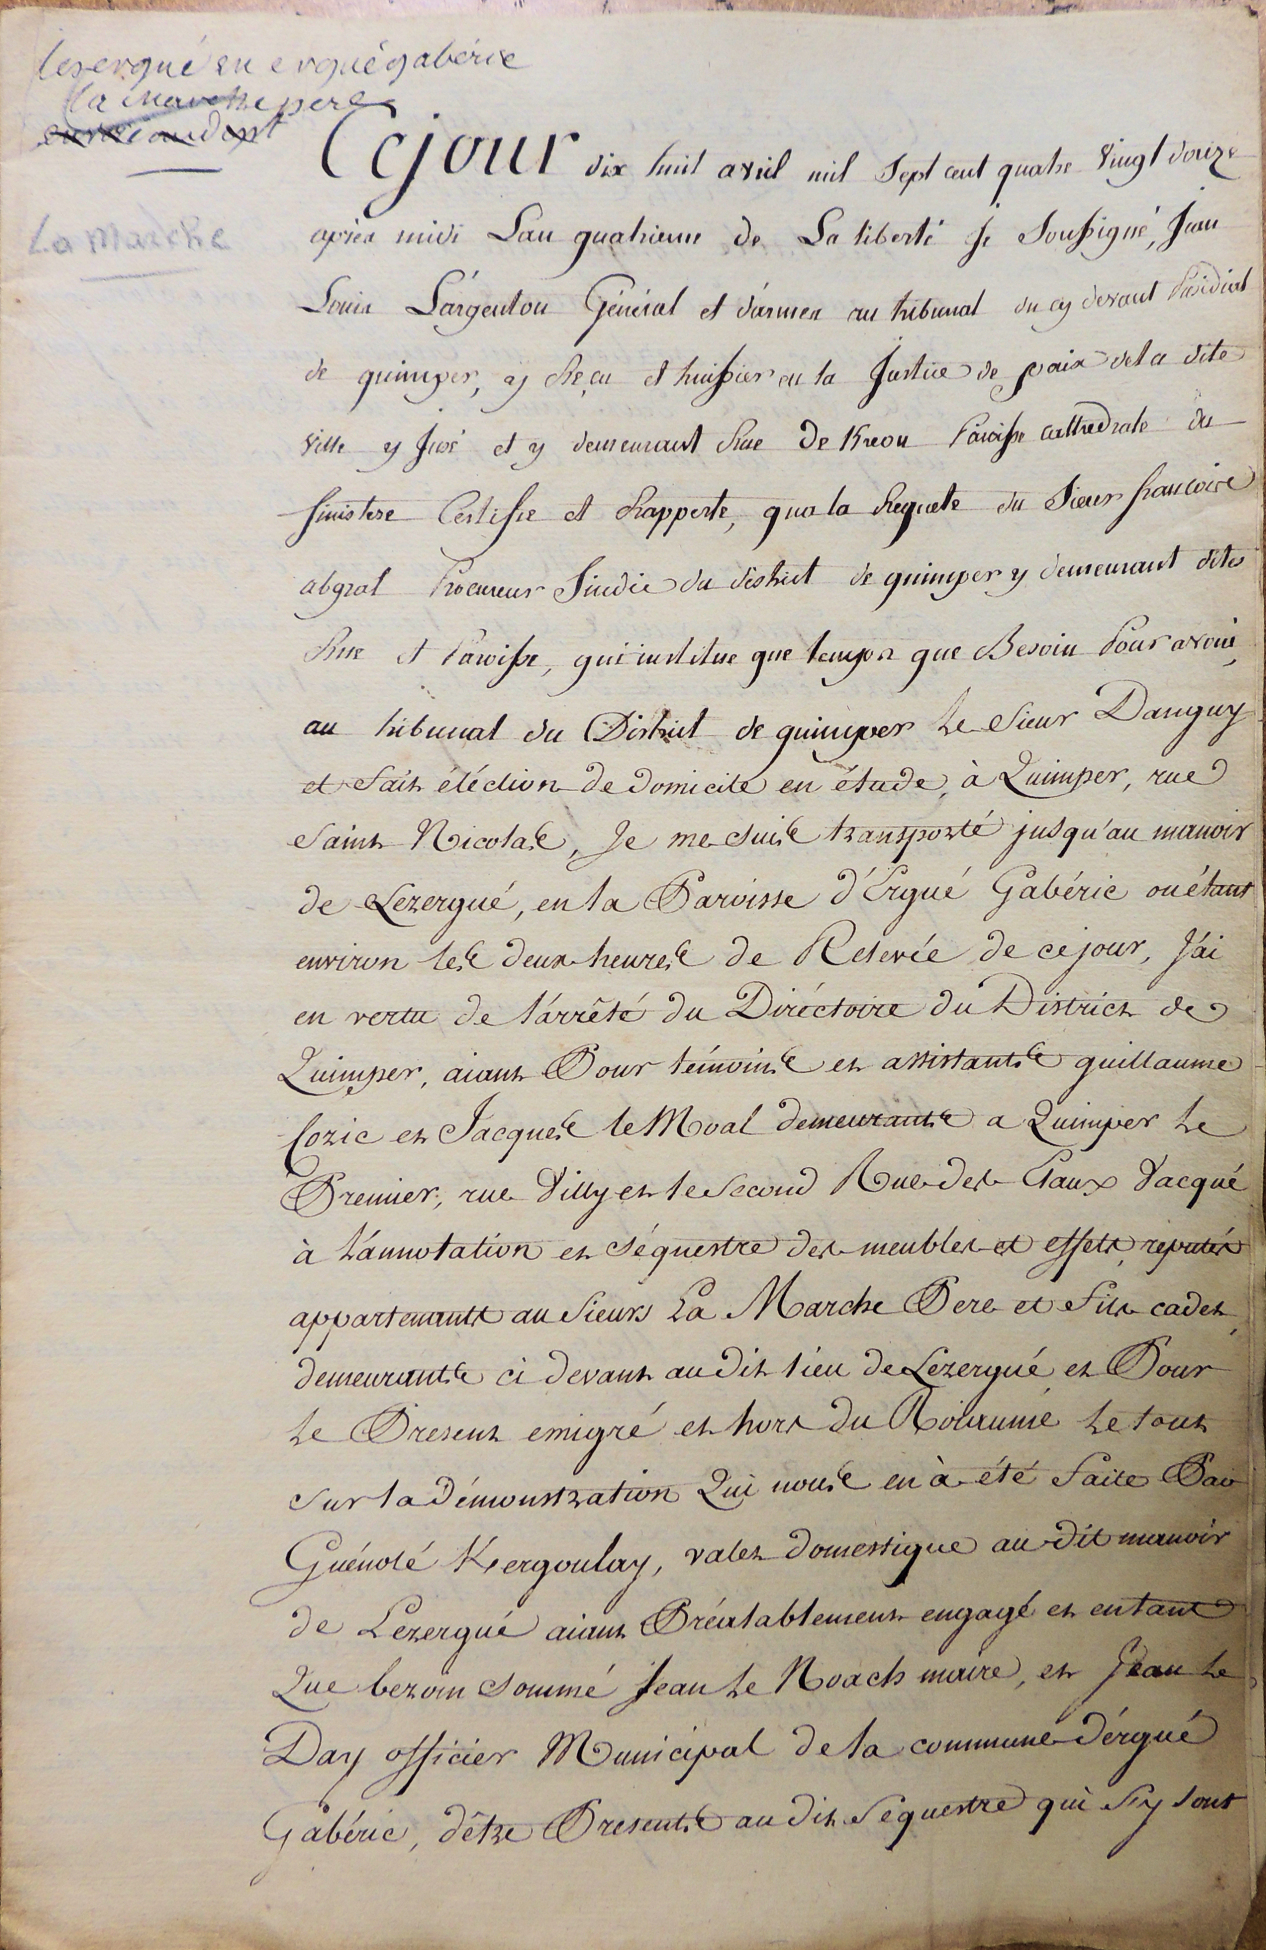 lezergué en ergué gabéric
la marche pere
La Marche
Cejour dix huit avril mil Sept cent quatre vingt douze
aprèa midi L'an quatrieme de La liberté Je Soussigné, Jean
Louis L'argenton Général et d'armes au tribunal du cy devant Présidial
de quimper, y Reçu et huissier en la Justice de paix de la dite
ville y Juré et y demeurant Rue de Kreon Paroisse cathedrale du
finistere Certifie et Rapporte, qu'a la Requete du Sieur francoise
abgral Procureur Sindic du district de quimper y demeurant dites
Rue et Paroisse, qui institue que temps que Besoin Pour avoué,
au tribunal du District de quimper Le Sieur Danguy
et fait éléction de domicile en étude, à Quimper, rue
Saint Nicolas, Je me suis transporté jusqu'au manoir
de Lezergué, en la Paroisse d'Ergué Gabéric ou étant
environ les deux heures de Relevée de ce jour, J'ai
en vertu de l'arrêté du Diréctoire du District de
Quimper, aiant Pour témoins et assistants guillaume
Cozic et Jacques le Moal demeurants a Quimper Le
Premier, rue Villy et le Second Rue des Eaux Vacqué
à L'annotation et séquestre des meubles et effets, reputés
appartenants au Sieurs La Marche Pere et fils cadet,
demeurants ci devant au dit lieu de Lezergué et Pour
Le Present emigré et hors du Roiaumé Le tout
sur la démonstration Qui nous en à été faite Par
Guénolé Kergoulay, valet domestique au dit manoir
de Lezergué aiant Préalablement engagé et en tant
Que bezoin sommé Jean Le Noach maire, et Jean Le
Day officier Municipal de la commune d'érgué
Gabéric, d'être Presents au dit Séquestre qui s'y sont